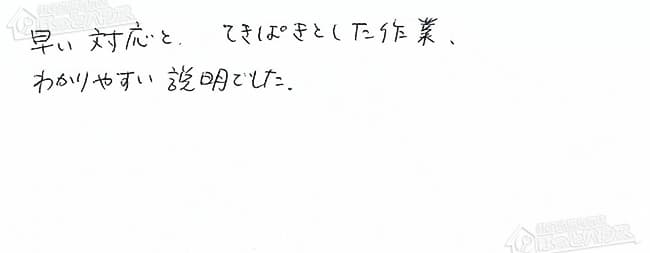 早い対応と、てきぱきとした作業、
わかりやすい説明でした。